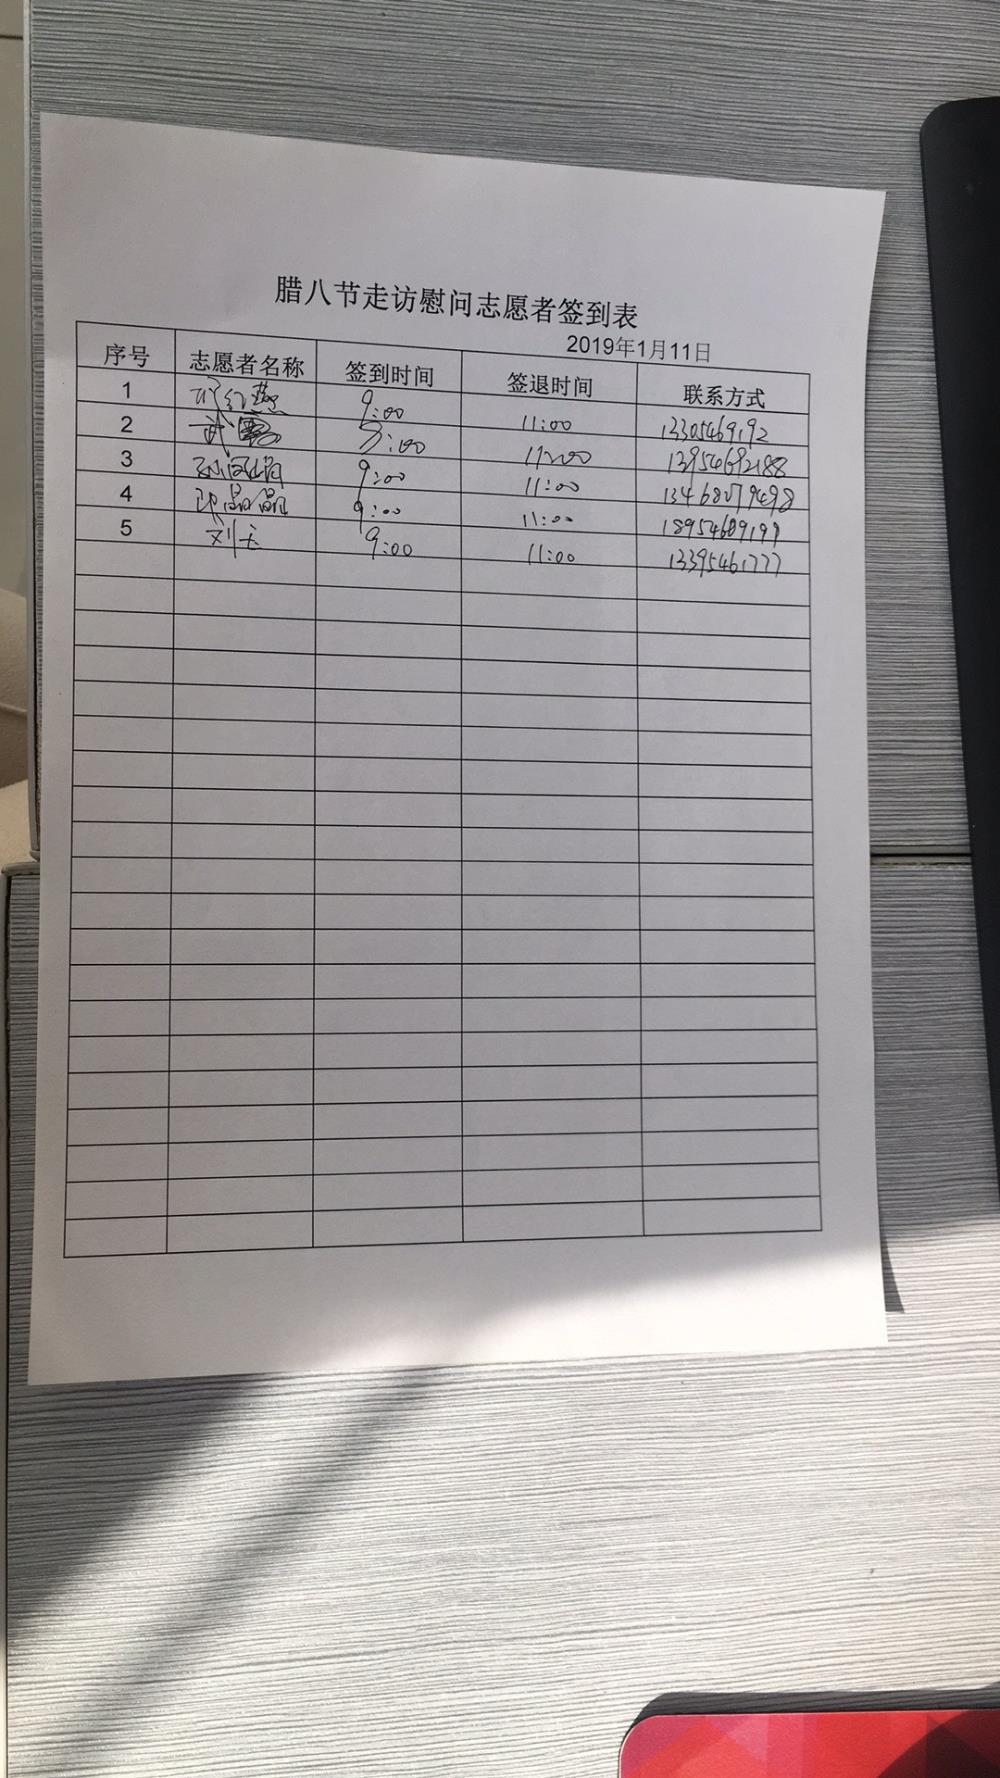 腊八节走访慰问志愿者签到表
2019年1月11日
序号 志愿者名称 签到时间 签退时间 联系方式
1 9:00 11:00 13305469192
2 武 9:00 11:00 13954692188
3 9:00 11:00 13468079498
4 张晶晶 9:00 11:00 18954609199
5 刘 9:00 11:00 13395461777